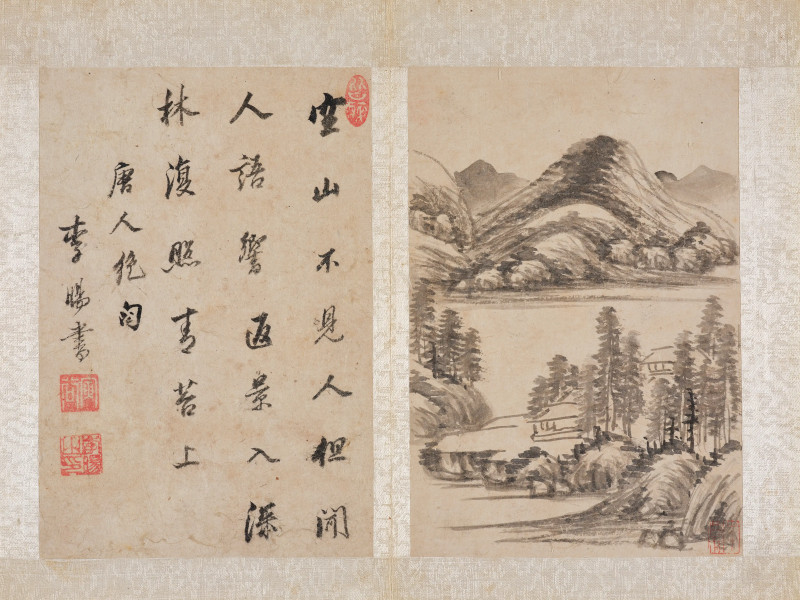 空山不見人但聞
人語響返景入深
林復照青苔上
唐人絕句
李暘書